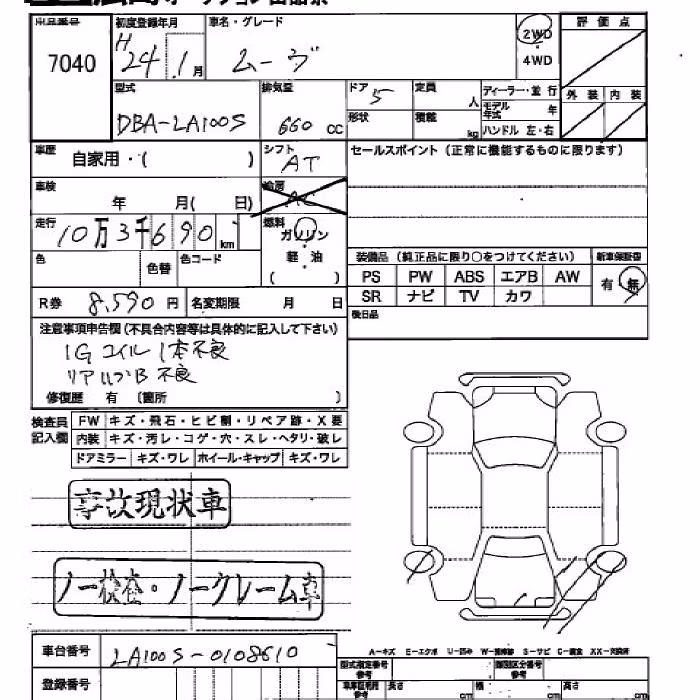 出品番号 7040
初度登録年月 H24年1月
車名・グレード ムーヴ
2WD
4WD
評価点
外装 内装
型式 DBA-LA100S
排気量 660 CC
ドア 5
形状
定員 人
積載 kg
ディーラー・並行
モデル年式 年
ハンドル 左・右
車歴 自家用・( )
シフト AT
セールスポイント(正常に機能するものに限ります)
車検 年 月( 日)
冷房 AC
走行 10万3千690 km
燃料 ガソリン
軽・油
( )
色 色替 色コード
装備品(純正品に限り○をつけてください) 新車保証書
PS PW ABS エアB AW 有・無
SR ナビ TV カワ
R券 8,590円 名変期限 月 日
後日品
注意事項申告欄(不具合内容等は具体的に記入して下さい)
IGコイル1本不良
リアハブB不良
修復歴 有 〔箇所 〕
検査員記入欄
FW キズ・飛石・ヒビ割・リペア跡・X要
内装 キズ・汚レ・コゲ・穴・スレ・ヘタリ・破レ
ドアミラー キズ・ワレ ホイール・キャップ キズ・ワレ
事故現状車
ノー検査・ノークレーム車
車台番号 LA100S-0108610
A-キズ E-エクボ U-凹み S-サビ C-腐食 XX-交換済
型式指定番号 類別区分番号
登録番号
長さ cm 幅 cm 高さ cm